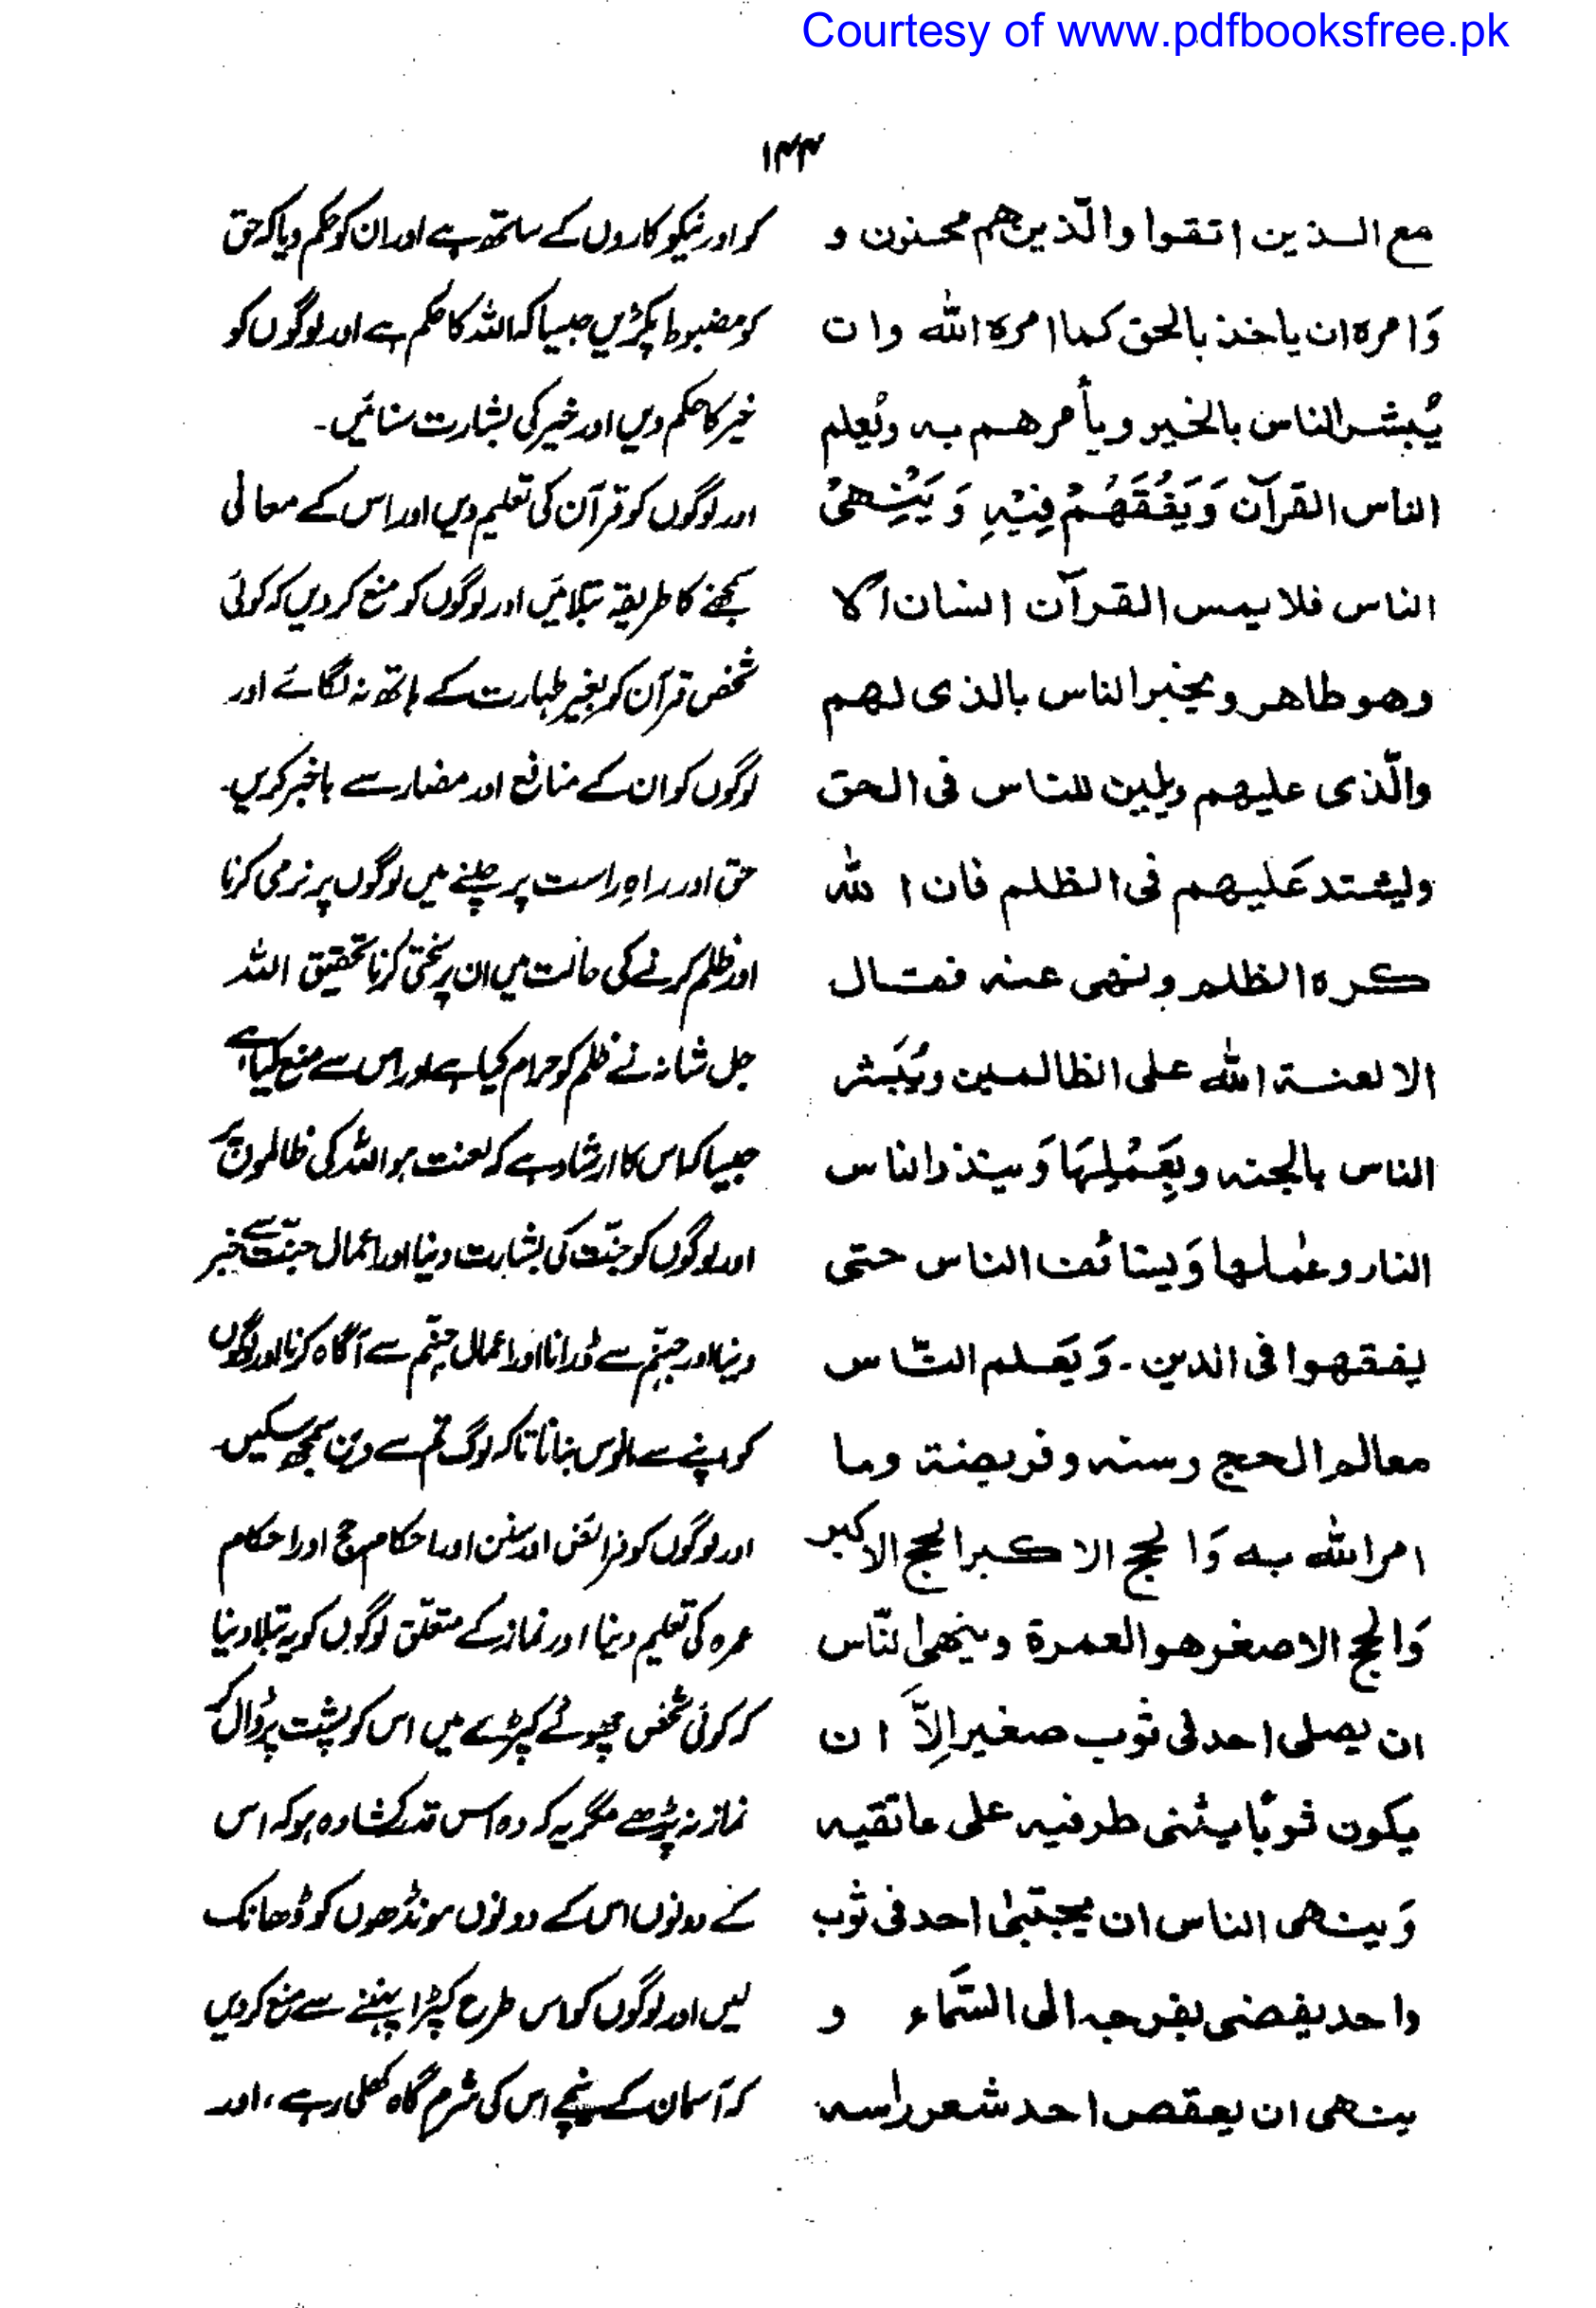 Courtesy of www.pdfbooksfree.pk
۱۴۴
مع الذین اتقوا والّذین هم محسنون و
وَامره ان یاخذ بالحق کما امره الله وان
یُبشر الناس بالخیر و یأمرهم به ویُعلم
الناس القرآن وَیَفُقَهُمْ فِیْهِ وَیَنْهیٰ
الناس فلا یمس القرآن انسان الا
وهو طاهر و یخبر الناس بالذی لهم
والّذی علیهم ویلین للناس فی الحق
ولیشتد عَلیهم فی الظلم فان الله
کره الظلم ونهی عنه فقال
الا لعنة الله علی الظالمین ویُبَشر
الناس بالجنه وبِعَمْلِهَا وَینذر الناس
النار وعملها وَیستائف الناس حتی
یفقهوا فی الدین۔ وَیَعلم النّاس
معالم الحج وسنه و فریضة وما
امر الله به وَالحج الاکبر الحج الاکبر
وَالحج الاصغر هو العمرة وینهی النّاس
ان یصلی احد فی ثوب صغیر اِلاَّ ان
یکون ثوبًا یثنی طرفیه علی عاتقیه
وَینهی الناس ان یجتبیٰ احد فی ثوب
واحد یفضی بفرجه الی السّمَاء و
ینهی ان یعقص احد شعر راسه
کو اور نیکو کاروں کے ساتھ ہے اور ان کو حکم دیا کہ حق
کو مضبوط پکڑیں جیسا کہ اللہ کا حکم ہے اور لوگوں کو
خیر کا حکم دیں اور خیر کی بشارت سنائیں۔
اور لوگوں کو قرآن کی تعلیم دیں اور اس کے معانی
سمجھنے کا طریقہ بتلائیں اور لوگوں کو منع کر دیں کہ کوئی
شخص قرآن کو بغیر طہارت کے ہاتھ نہ لگائے اور
لوگوں کو ان کے منافع اور مضار سے باخبر کریں۔
حق اور راہِ راست پر چلنے میں لوگوں پر نرمی کرنا
اور ظلم کرنے کی حالت میں ان پر سختی کرنا تحقیق اللہ
جل شانہ نے ظلم کو حرام کیا ہے اور اس سے منع کیا ہے
جیسا کہ اس کا ارشاد ہے کہ لعنت ہو اللہ کی ظالموں پر
اور لوگوں کو جنّت کی بشارت دینا اور اعمال جنّت سے خبر
دینا اور جہنّم سے ڈرانا اور اعمال جہنّم سے آگاہ کرنا اور لوگوں
کو اپنے سے مانوس بنانا تاکہ لوگ تم سے دین سمجھ سکیں۔
اور لوگوں کو فرائض اور سنن اور احکام حج اور احکام
عمرہ کی تعلیم دینا اور نماز کے متعلّق لوگوں کو یہ بتلا دینا
کہ کوئی شخص چھوٹے کپڑے میں اس کو پشت پر ڈال کر
نماز نہ پڑھے مگر یہ کہ وہ اس قدر کشادہ ہو کہ اس
کے دونوں اس کے دونوں مونڈھوں کو ڈھانک
لیں اور لوگوں کو اس طرح کپڑا پہننے سے منع کردیں
کہ آسمان کے نیچے اس کی شرم گاہ کھلی رہے، اور